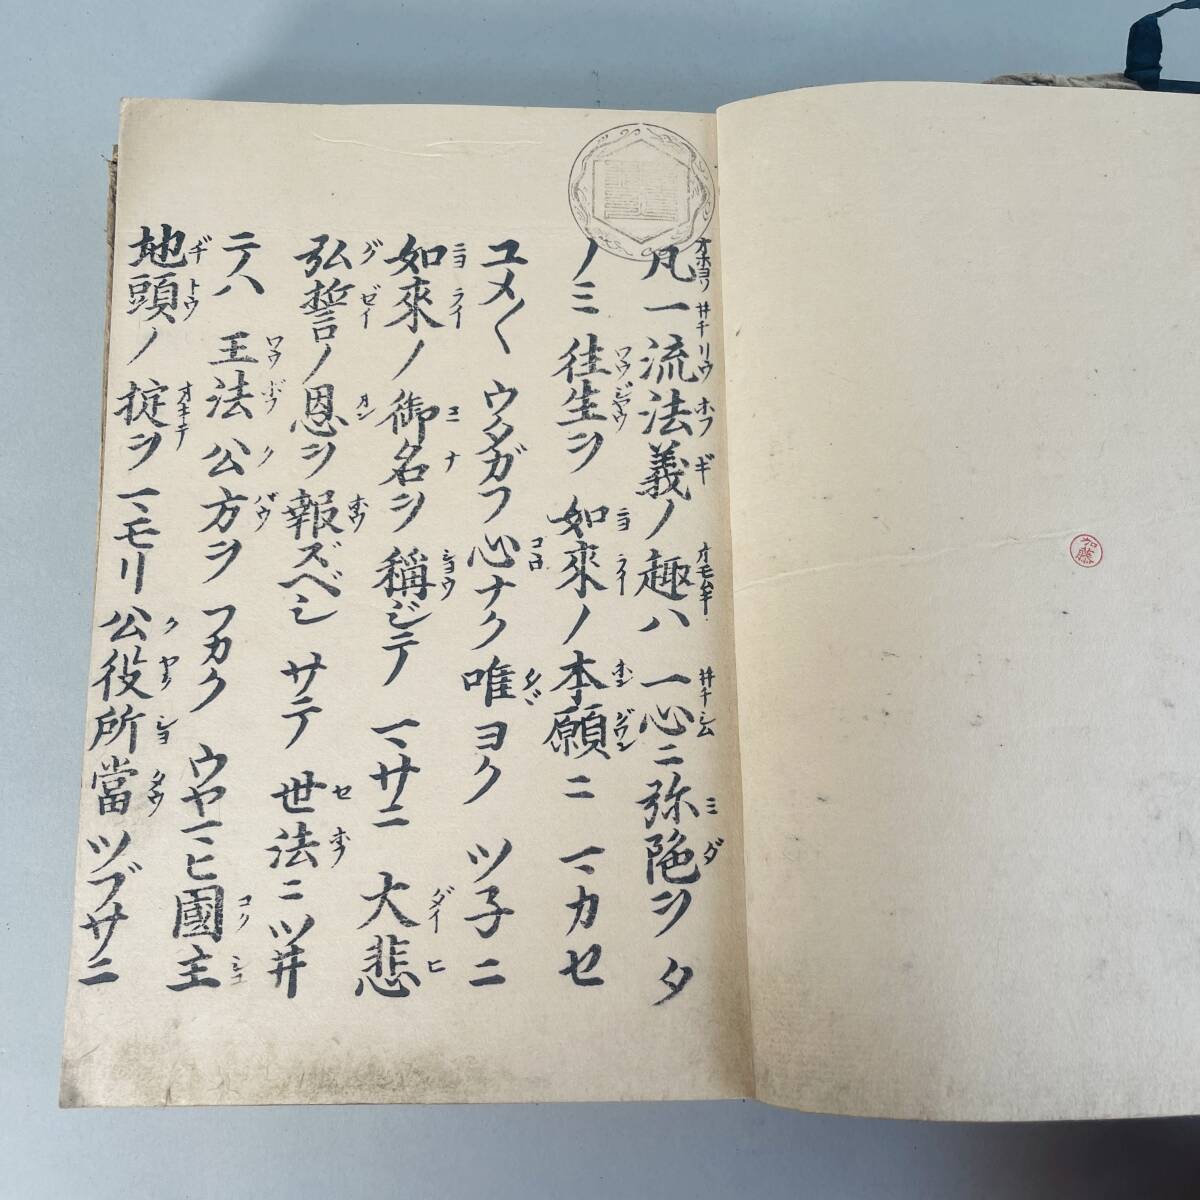 凡一流法義ノ趣ハ一心ニ弥陀ヲタ
ノミ往生ヲ如來ノ本願ニマカセ
ユメ〱ウタガフ心ナク唯ヨクツ子ニ
如來ノ御名ヲ稱ジテマサニ大悲
弘誓ノ恩ヲ報ズベシサテ世法ニツ井
テハ王法公方ヲフカクウヤマヒ國主
地頭ノ掟ヲマモリ公役所當ツブサニ
加藤